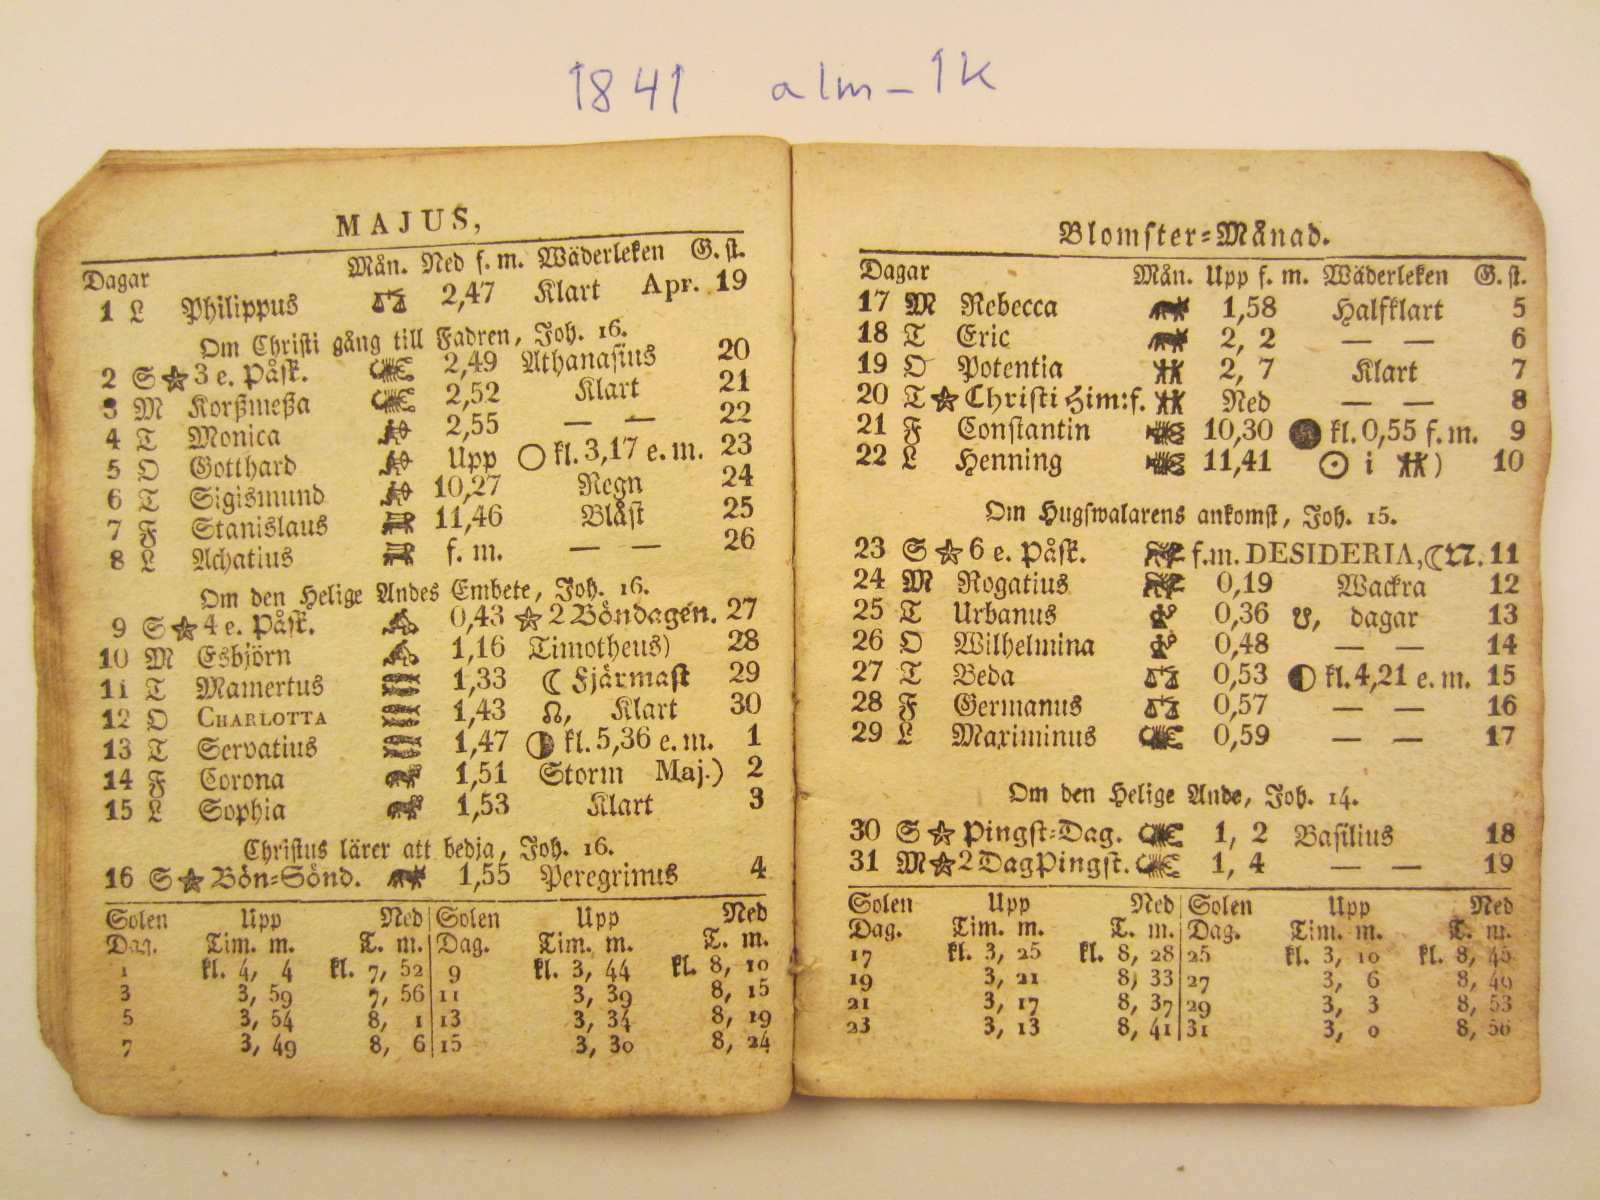 1841 alm-1k
MAJUS,
Dagar Mån. Ned f. m. Wäderleken G. st.
1 L Philippus ♎ 2,47 Klart Apr. 19
Om Christi gång till Fadren, Joh. 16.
2 S ☆ 3 e. Påsk. ♏ 2,49 Athanasius 20
3 M Korßmeßa ♏ 2,52 Klart 21
4 T Monica ♐ 2,55 — — 22
5 O Gotthard ♐ Upp ○ kl. 3,17 e. m. 23
6 T Sigismund ♐ 10,27 Regn 24
7 F Stanislaus ♑ 11,46 Blåst 25
8 L Achatius ♑ f. m. — — 26
Om den Helige Andes Embete, Joh. 16.
9 S ☆ 4 e. Påsk. ♒ 0,43 ☆ 2 Böndagen. 27
10 M Esbjörn ♒ 1,16 Timotheus) 28
11 T Mamertus ♓ 1,33 ☾ Fjärmast 29
12 O CHARLOTTA ♓ 1,43 ☊, Klart 30
13 T Servatius ♓ 1,47 ◑ kl. 5,36 e. m. 1
14 F Corona ♈ 1,51 Storm Maj.) 2
15 L Sophia ♈ 1,53 Klart 3
Christus lärer att bedja, Joh. 16.
16 S ☆ Bön-Sönd. ♉ 1,55 Peregrinus 4
Solen Upp Ned Solen Upp Ned
Dag. Tim. m. T. m. Dag. Tim. m. T. m.
1 kl. 4, 4 kl. 7, 52 9 kl. 3, 44 kl. 8, 10
3 3, 59 7, 56 11 3, 39 8, 15
5 3, 54 8, 1 13 3, 34 8, 19
7 3, 49 8, 6 15 3, 30 8, 24
Blomster-Månad.
Dagar Mån. Upp f. m. Wäderleken G. st.
17 M Rebecca ♉ 1,58 Halfklart 5
18 T Eric ♉ 2, 2 — — 6
19 O Potentia ♊ 2, 7 Klart 7
20 T ☆ Christi Him:f. ♊ Ned — — 8
21 F Constantin ♋ 10,30 ● kl. 0,55 f. m. 9
22 L Henning ♋ 11,41 ☉ i ♊) 10
Om Hugswalarens ankomst, Joh. 15.
23 S ☆ 6 e. Påsk. ♌ f.m. DESIDERIA, ☾ N. 11
24 M Rogatius ♌ 0,19 Wackra 12
25 T Urbanus ♍ 0,36 ☋, dagar 13
26 O Wilhelmina ♍ 0,48 — — 14
27 T Beda ♎ 0,53 ◐ kl. 4,21 e. m. 15
28 F Germanus ♎ 0,57 — — 16
29 L Maximinus ♏ 0,59 — — 17
Om den Helige Ande, Joh. 14.
30 S ☆ Pingst-Dag. ♏ 1, 2 Basilius 18
31 M ☆ 2 Dag Pingst. ♏ 1, 4 — — 19
Solen Upp Ned Solen Upp Ned
Dag. Tim. m. T. m. Dag. Tim. m. T. m.
17 kl. 3, 25 kl. 8, 28 25 kl. 3, 10 kl. 8, 45
19 3, 21 8, 33 27 3, 6 8, 49
21 3, 17 8, 37 29 3, 3 8, 53
23 3, 13 8, 41 31 3, 0 8, 56